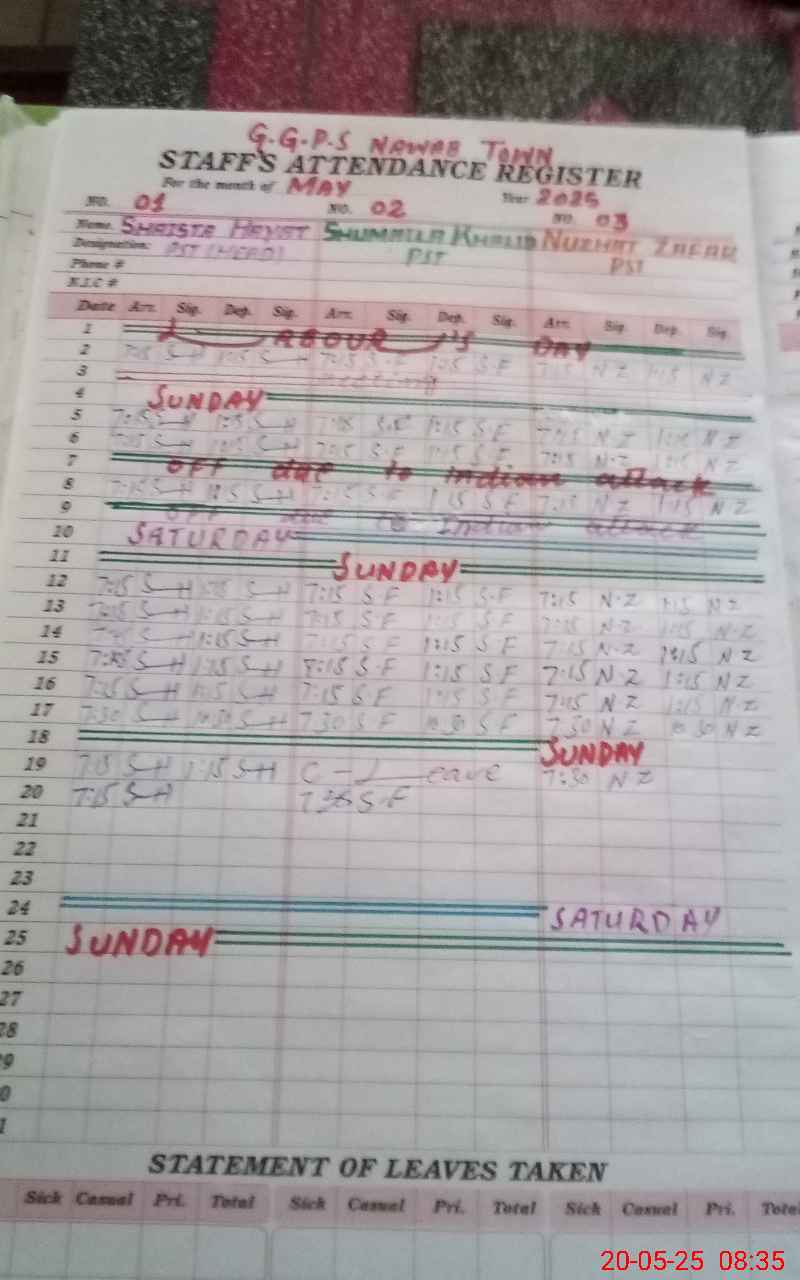 G.G.P.S NAWAB TOWN
STAFF'S ATTENDANCE REGISTER
For the month of MAY Year 2025
NO. 01 NO. 02 NO. 03
Name. SHAISTA HAYAT SHUMAILA KHALID NUZHAT ZAFAR
Designation: PST (HEAD) PST PST
Phone #
N.I.C #
Date Arr. Sig. Dep. Sig. Arr. Sig. Dep. Sig. Arr. Sig. Dep. Sig.
1 LABOUR'S DAY
2 7:15 S-H 1:15 S-H 7:15 S.F 1:15 S.F 7:15 N Z 1:15 N Z
3
4 SUNDAY
5 7:15 S-H 1:15 S-H 7:15 S.F 1:15 S.F 7:15 N Z 1:15 N Z
6 7:15 S-H 1:15 S-H 7:15 S.F 1:15 S.F 7:15 N.Z 1:15 N Z
7 off due to Indian attack
8 7:15 S-H 1:15 S-H 7:15 S.F 1:15 S.F 7:15 N Z 1:15 N Z
9 off due to Indian attack
10 SATURDAY
11 SUNDAY
12 7:15 S-H 1:15 S-H 7:15 S.F 1:15 S.F 7:15 N.Z 1:15 N Z
13 7:15 S-H 1:15 S-H 7:15 S.F 1:15 S.F 7:15 N.Z 1:15 N.Z
14 S-H 1:15 S-H 7:15 S.F 1:15 S.F 7:15 N.Z 1:15 N Z
15 S-H 1:15 S-H S.F 1:15 S.F 7:15 N.Z 1:15 N Z
16 7:15 S-H 1:15 S-H 7:15 S.F 1:15 S.F 7:15 N.Z 1:15 N Z
17 7:30 S-H 10:30 S-H 7:30 S.F 10:30 S.F 7:30 N Z 10:30 N Z
18 SUNDAY
19 7:15 S-H 1:15 S-H C-Leave 7:30 N Z
20 7:15 S-H S.F
21
22
23
24 SATURDAY
25 SUNDAY
26
27
28
9
0
1
STATEMENT OF LEAVES TAKEN
Sick Casual Pri. Total Sick Casual Pri. Total Sick Casual Pri. Total
20-05-25 08:35